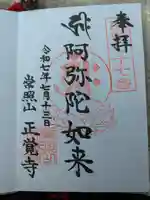 奉拝
阿弥陀如来
令和七年七月十三日
常照山 正覚寺